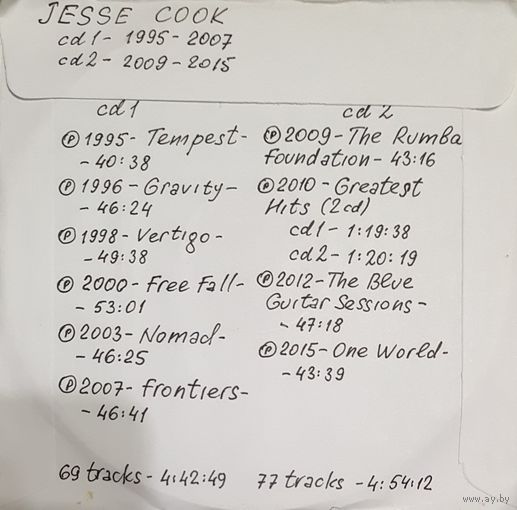 JESSE COOK
cd1 - 1995 - 2007
cd2 - 2009 - 2015
cd1
Ⓟ 1995 - Tempest -
- 40:38
Ⓟ 1996 - Gravity -
- 46:24
Ⓟ 1998 - Vertigo -
- 49:38
Ⓟ 2000 - Free Fall -
- 53:01
Ⓟ 2003 - Nomad -
- 46:25
Ⓟ 2007 - Frontiers -
- 46:41
69 tracks - 4:42:49
cd2
Ⓟ 2009 - The Rumba
Foundation - 43:16
Ⓟ 2010 - Greatest
Hits (2cd)
cd1 - 1:19:38
cd2 - 1:20:19
Ⓟ 2012 - The Blue
Guitar Sessions -
- 47:18
Ⓟ 2015 - One World -
- 43:39
77 tracks - 4:54:12
www.ay.by